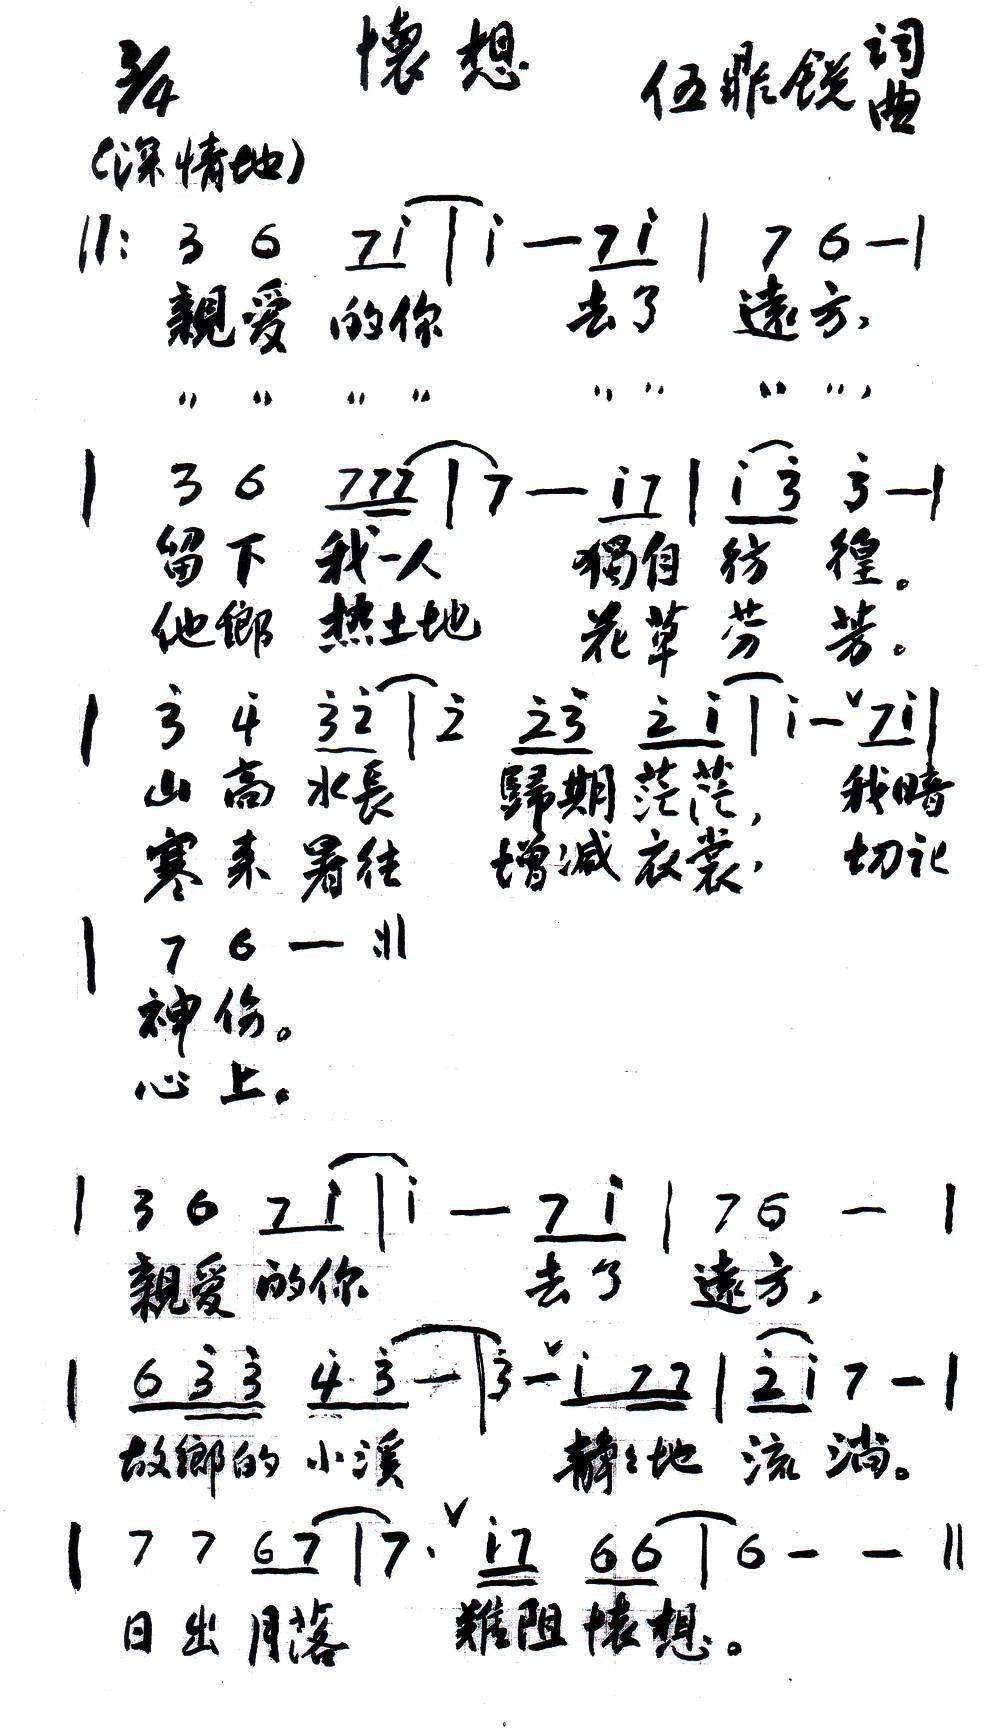 懷想
3/4
伍鼎銳 詞曲
(深情地)
||: 3 6 7i | i — 7i | 7 6 — |
親愛的你 去了 遠方,
〃 〃 〃 〃 〃 〃 〃 〃,
| 3 6 777 | 7 — i7 | i3̇ 3̇ — |
留下 我一人 獨自 彷徨。
他鄉 热土地 花草 芬芳。
| 3̇ 4̇ 3̇2̇ | 2̇ 2̇3̇ 2̇i | i — ˅ 7i |
山高 水長 歸期 茫茫, 我暗
寒来 暑往 增減 衣裳, 切记
| 7 6 — :||
神伤。
心上。
| 3 6 7i | i — 7i | 7 6 — |
親愛 的你 去了 遠方,
| 63̇3̇ 4̇3̇ — | 3̇ — ˅ i77 | 2̇i 7 — |
故鄉的 小溪 靜々地 流淌。
| 7 7 67 | 7· ˅ i7 66 | 6 — — ||
日出 月落 難阻 懷想。